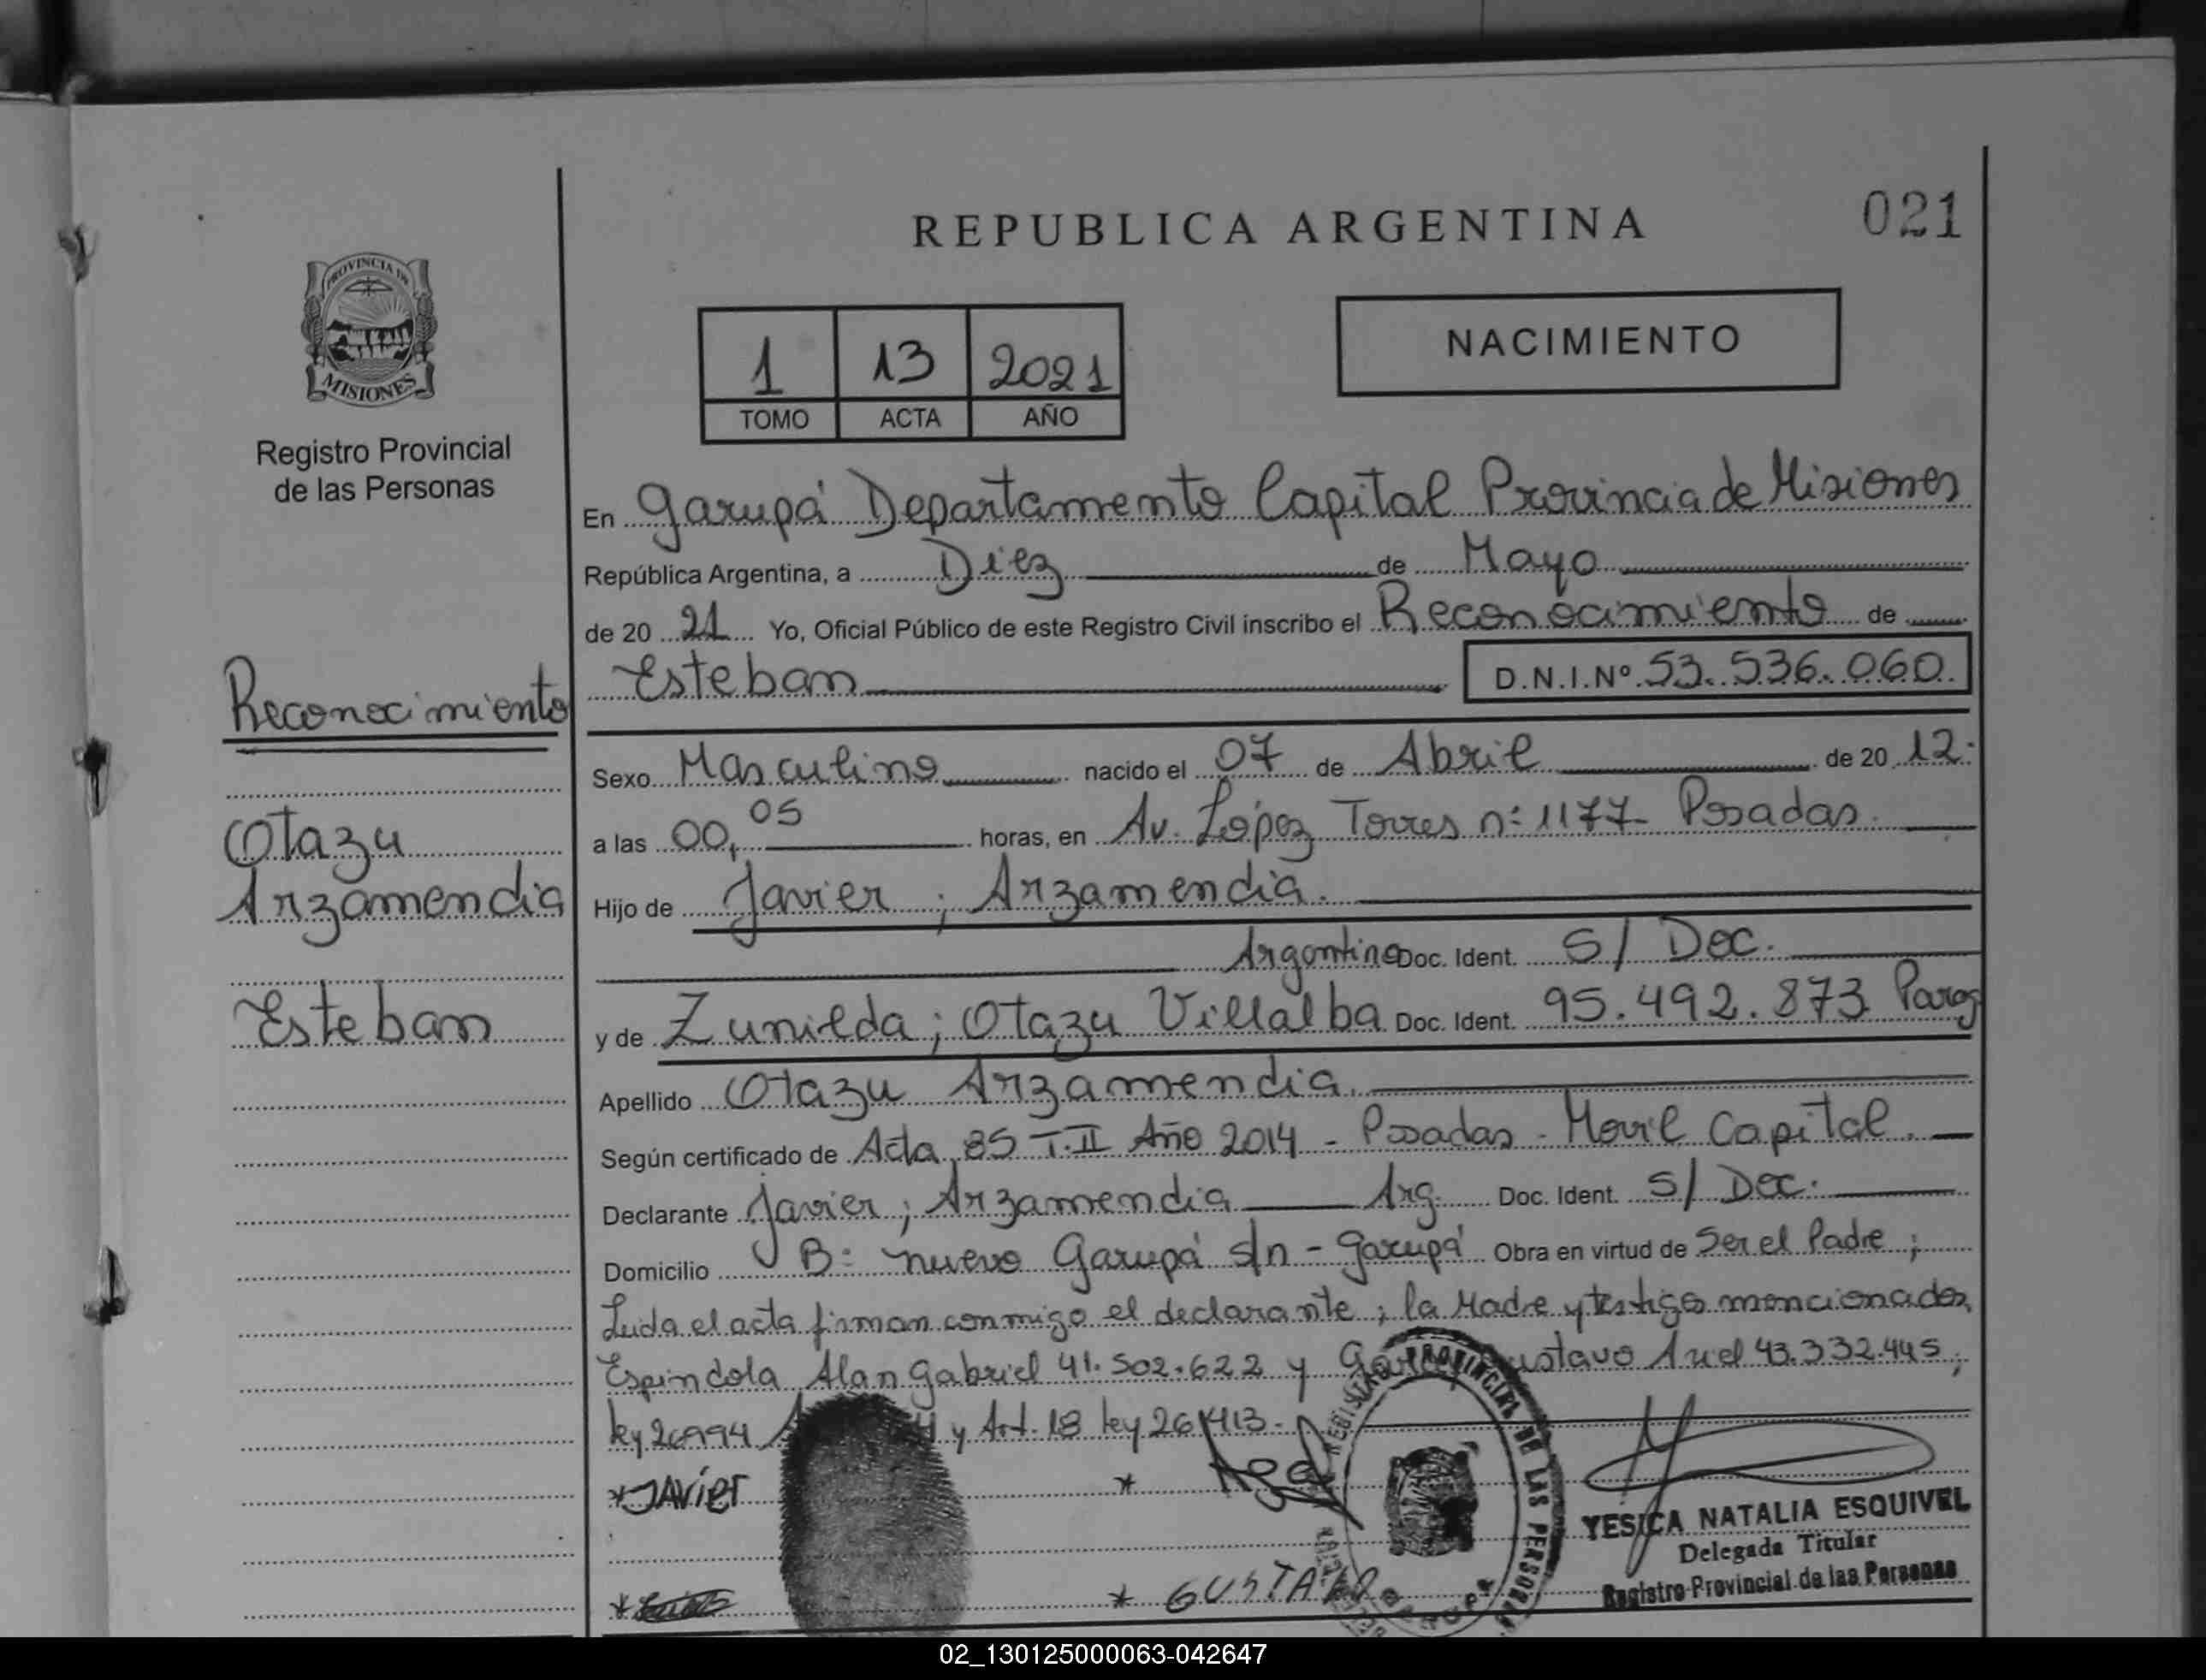 REPUBLICA ARGENTINA
021
PROVINCIA DE
MISIONES
Registro Provincial
de las Personas
1 13 2021
TOMO ACTA AÑO
NACIMIENTO
En Garupá Departamento Capital Provincia de Misiones
República Argentina, a Diez de Mayo
de 20 21 Yo, Oficial Público de este Registro Civil inscribo el Reconocimiento de
Esteban D.N.I.Nº 53.536.060
Reconocimiento
Otazu
Arzamendia
Esteban
Sexo Masculino nacido el 07 de Abril de 20 12.
a las 00,05 horas, en Av. López Torres nº 1177 Posadas.
Hijo de Javier ; Arzamendia.
Argentino Doc. Ident. S/ Doc.
y de Zunilda ; Otazu Villalba Doc. Ident. 95.492.873 Parag
Apellido Otazu Arzamendia.
Según certificado de Acta 85 T.II Año 2014 - Posadas - Movil Capital.
Declarante Javier ; Arzamendia Arg. Doc. Ident. S/ Doc.
Domicilio Bº nuevo Garupá s/n - Garupá Obra en virtud de Ser el Padre ;
Leida el acta firman conmigo el declarante ; la Madre y testigos mencionados,
Espindola Alan Gabriel 41.502.622 y Gustavo 43.332.445 ;
ley 26994 y Art. 18 ley 26413.
* JAVIER *
* * GUSTAVO
REGISTRO PROVINCIAL DE LAS PERSONAS
YESICA NATALIA ESQUIVEL
Delegada Titular
Registro Provincial de las Personas
02_130125000063-042647